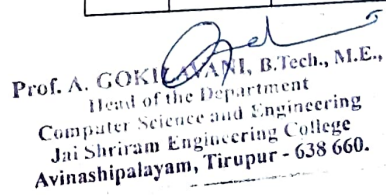 Prof. A. GOKILAVANI, B.Tech., M.E.,
Head of the Department
Computer Science and Engineering
Jai Shriram Engineering College
Avinashipalayam, Tirupur - 638 660.